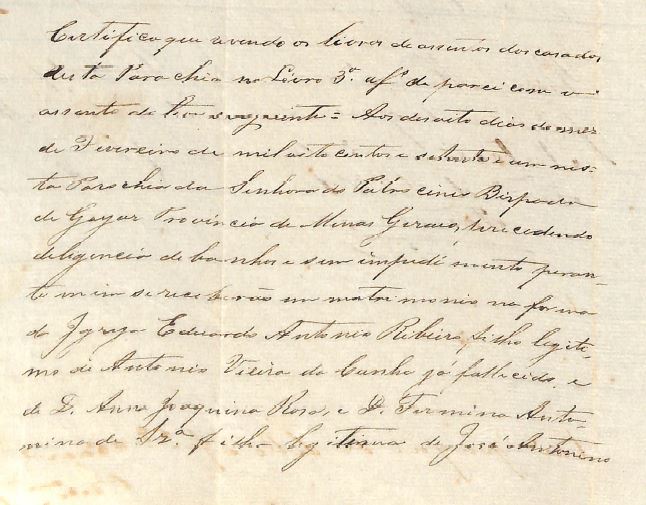 Certifico que revendo os livros de assentos dos casados
desta Parochia no Livro 3º. a fs de parei com o
assento do theor seguinte = Aos desoito dias do mez
de Fivereiro de mil oito centos e setenta e um nes-
ta Parochia da Senhora do Patrocinio Bispado
de Goyaz Provincia de Minas Geraes, precedendo
deligencia de banhos e sem impedimento peran-
te mim se receberão em matrimonio na forma
da Igreja Eduardo Antonio Ribeiro, filho legiti-
mo de Antonio Vieira da Cunha já fallecido, e
de D. Anna Joaquina Rosa, e D. Firmina Anto-
nina de Srª. filha legitima de José Antonino